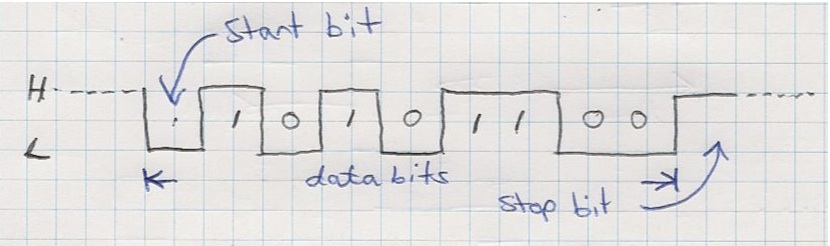 Start bit
H
1 0 1 0 1 1 0 0
L
data bits
stop bit